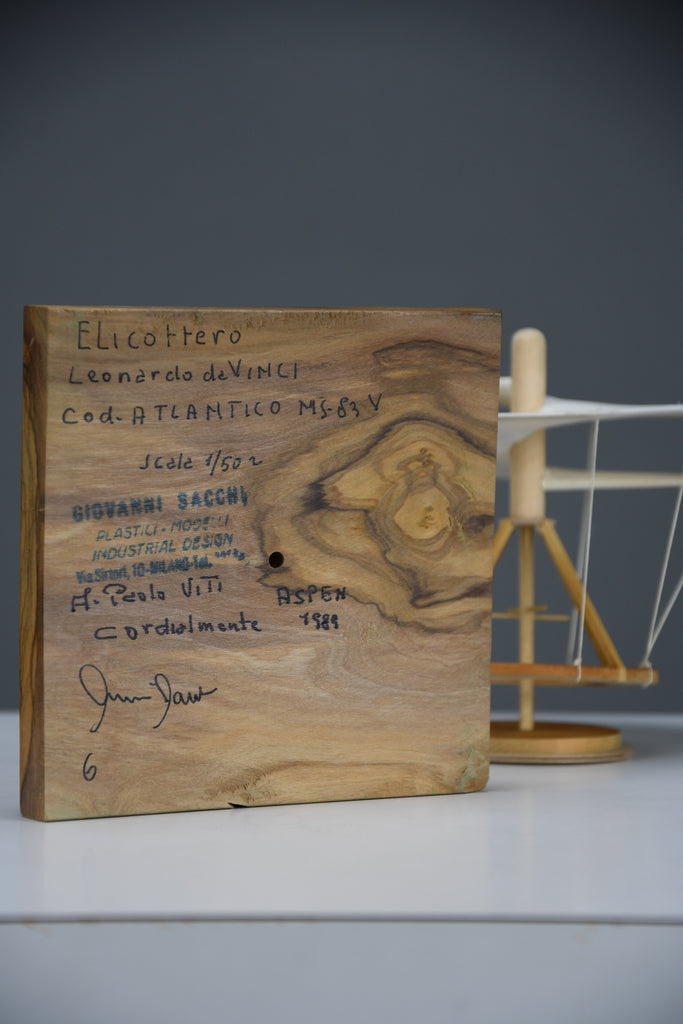 ELicottero
Leonardo da VINCI
Cod. ATLANTICO MS-83 V
Scala 1/50
GIOVANNI SACCHI
PLASTICI - MODELLI
INDUSTRIAL DESIGN
Via Sirtori, 10-MILANO-Tel.
A. Paolo VITI
ASPEN
1989
cordialmente
6